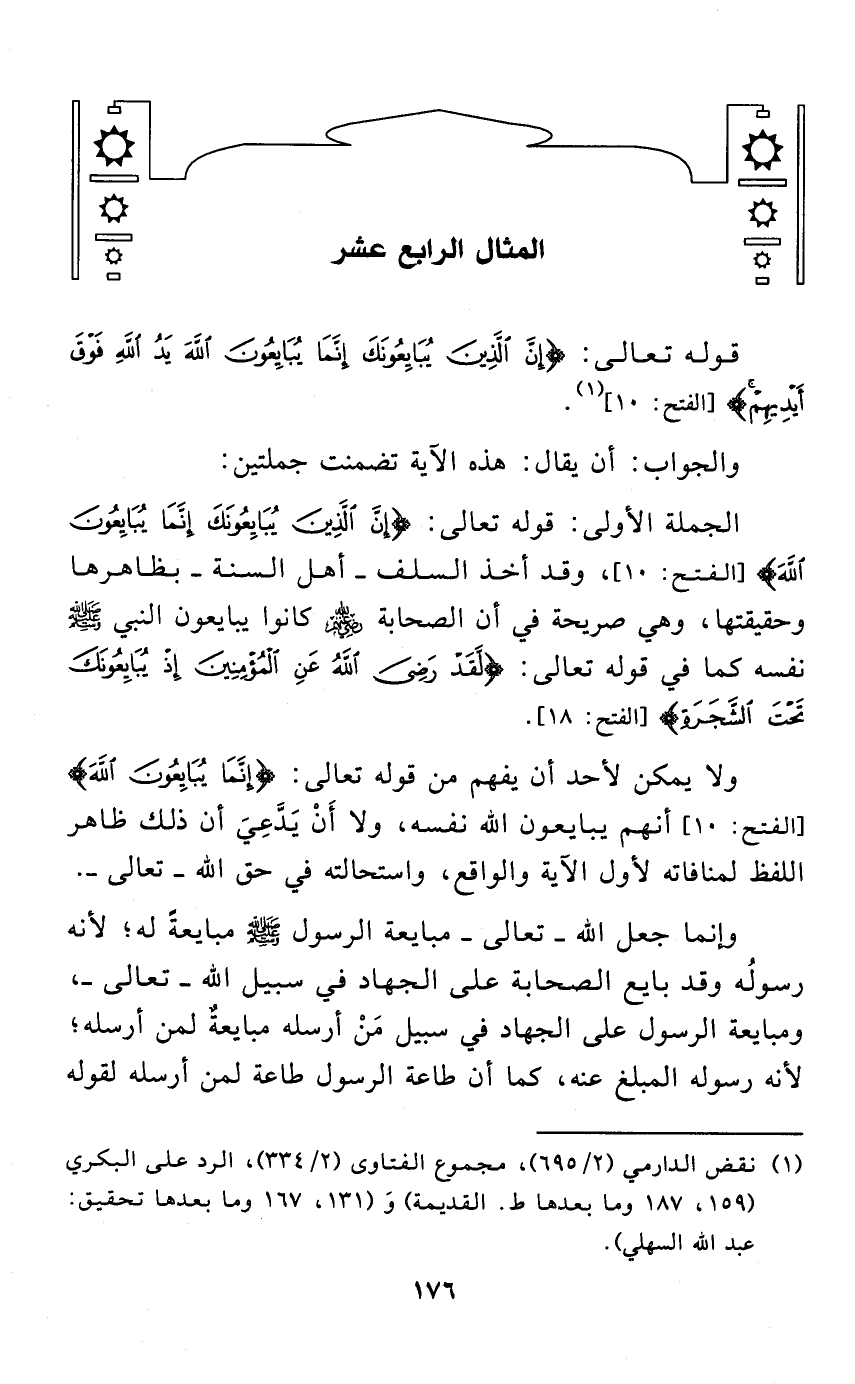 المثال الرابع عشر
قوله تعالى: ﴿إِنَّ ٱلَّذِينَ يُبَايِعُونَكَ إِنَّمَا يُبَايِعُونَ ٱللَّهَ يَدُ ٱللَّهِ فَوْقَ
أَيْدِيهِمْۚ﴾ [الفتح: ١٠](١).
والجواب: أن يقال: هذه الآية تضمنت جملتين:
الجملة الأولى: قوله تعالى: ﴿إِنَّ ٱلَّذِينَ يُبَايِعُونَكَ إِنَّمَا يُبَايِعُونَ
ٱللَّهَ﴾ [الفتح: ١٠]، وقد أخذ السلف ـ أهل السنة ـ بظاهرها
وحقيقتها، وهي صريحة في أن الصحابة رضي الله عنهم كانوا يبايعون النبي ﷺ
نفسه كما في قوله تعالى: ﴿لَّقَدْ رَضِىَ ٱللَّهُ عَنِ ٱلْمُؤْمِنِينَ إِذْ يُبَايِعُونَكَ
تَحْتَ ٱلشَّجَرَةِ﴾ [الفتح: ١٨].
ولا يمكن لأحد أن يفهم من قوله تعالى: ﴿إِنَّمَا يُبَايِعُونَ ٱللَّهَ﴾
[الفتح: ١٠] أنهم يبايعون الله نفسه، ولا أَنْ يَدَّعِيَ أن ذلك ظاهر
اللفظ لمنافاته لأول الآية والواقع، واستحالته في حق الله ـ تعالى ـ.
وإنما جعل الله ـ تعالى ـ مبايعة الرسول ﷺ مبايعةً له؛ لأنه
رسولُه وقد بايع الصحابة على الجهاد في سبيل الله ـ تعالى ـ،
ومبايعة الرسول على الجهاد في سبيل مَنْ أرسله مبايعةٌ لمن أرسله؛
لأنه رسوله المبلغ عنه، كما أن طاعة الرسول طاعة لمن أرسله لقوله
(١) نقض الدارمي (٢/ ٦٩٥)، مجموع الفتاوى (٢/ ٣٣٤)، الرد على البكري
(١٥٩، ١٨٧ وما بعدها ط. القديمة) وَ (١٣١، ١٦٧ وما بعدها تحقيق:
عبد الله السهلي).
١٧٦